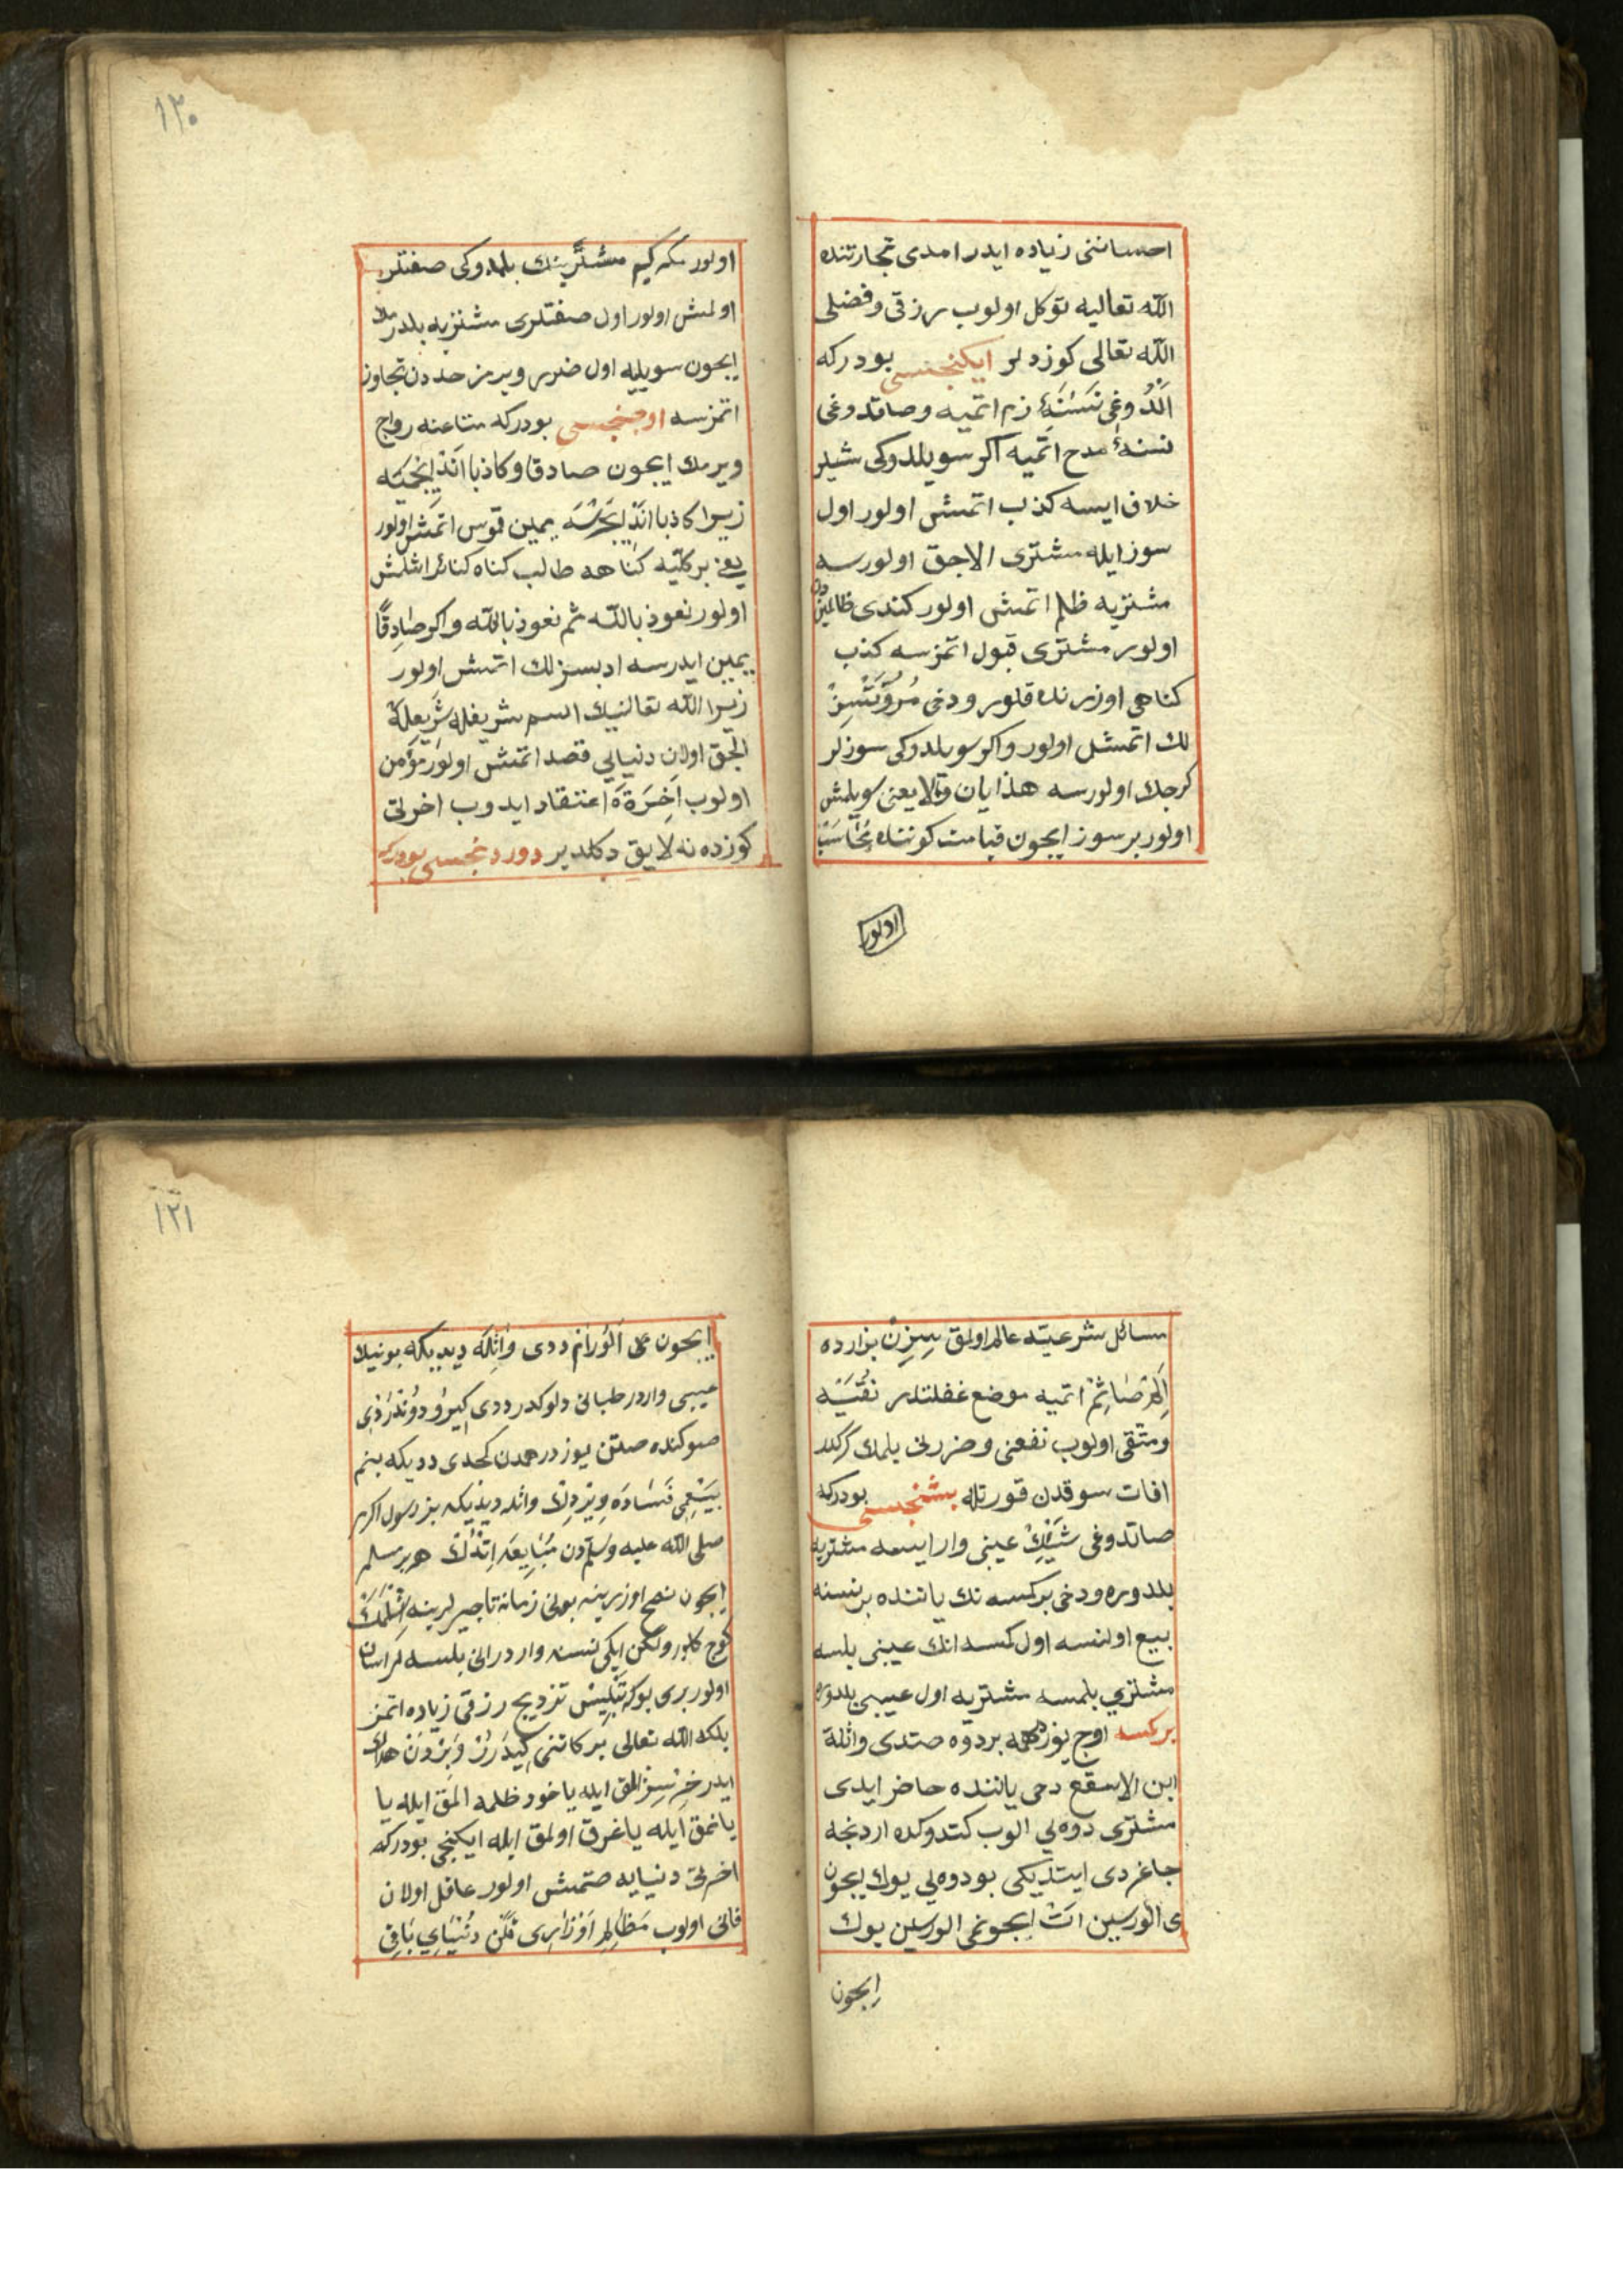 احساننی زیاده ایدر امدی تجارتنده
الله تعالیه توکل اولوب رزقی و فضلی
الله تعالی کوزدلر ایکنجیسی بودرکه
الدوغی نسنهٔ زم اتمیه و صاتدوغی
نسنهٔ مدح اتمیه اکر سویلدوکی شیلر
خلاف ایسه کذب اتمش اولور اول
سوز ایله مشتری الاجق اولورسه
مشتریه ظلم اتمش اولور کندی ظالمیندن
اولور مشتری قبول اتمزسه کذب
کناهی اوزرنده قلور و دخی مروتسز
لك اتمشل اولور و اکر سویلدوکی سوزلر
کرجك اولورسه هذایان و لایعنی سویلمش
اولور بر سوز ایجون قیامت کوننده محاسب
اولور
۱۲۰
اولور مکر کیم مشترینك بلمدوکی صفتلر
اولمش اولور اول صفتلری مشتریه بلدرمك
ایجون سویلیه اول ضرر ویرمز حددن تجاوز
اتمزسه اوجنجیسی بودرکه متاعنه رواج
ویرمك ایجون صادقا و کاذبا اند ایجمیه
زیرا کاذبا اند ایجرسه یمین غموس اتمش اولور
یعنی بر کلتیه کناهه طالب کناه کبائر اشلمش
اولور نعوذ بالله ثم نعوذ بالله و اکر صادقا
یمین ایدرسه ادبسزلك اتمش اولور
زیرا الله تعالینك اسم شریفله
الجق اولان دنیایی قصد اتمش اولور مؤمن
اولوب اخرة اعتقاد ایدوب اخرتی
کوزدنه لایق دکلدیر دوردنجیسی بودرکه
مسائل شرعیته عالم اولمق سزن بزارده
اتمیه موضع غفلتلدر
و متقی اولوب نفعنی و ضررنی بلمك کرکدر
افات سوقدن قورتله بشنجیسی بودرکه
صاتدوغی شینك عیبی وار ایسه مشتریه
بلدوره و دخی بر کسه نك یاننده بر نسنه
بیع اولنسه اول کمسه انك عیبنی بلسه
مشتری بلمسه مشتریه اول عیبی بلدوره
بر کسه اوج یوز درهمه بر دوه صتدی واثلة
ابن الاسقع دخی یاننده حاضر ایدی
مشتری دوه یی الوب کتدوکده اردنجه
جاغردی ایتدیکی بو دوه یی یوك ایجون
می الورسین ات ایجونمی الورسین یوك
ایجون
۱۲۱
ایجون می الورم ددی واثله دیدیکه بونیك
عیبی واردر طبانی دلوکدر ددی کیرو دوندردی
صوکنده صلتن یوز درهمدن کجدی ددیکه بنم
بیعمی فساده ویردك واثله دیدیکه بز رسول اکرم
صلی الله علیه وسلمدن مبایعه اتدك هر بر مسلم
ایجون نصح اوزرینه بونی زمانه تاجرلرینه اشلمك
کوج کلور ولکن ایکی نسنه واردر انی بلسه لر اسان
اولور بری بوکه تلبیس تزویج رزقی زیاده اتمز
بلکه الله تعالی برکاتنی کیدرر و بردن هلاك
ایدر خرسز المق ایله یاخود ظلمه المق ایله یا
یانمق ایله یا غرق اولمق ایله ایکنجی بودرکه
اخرتی دنیایه صتمش اولور عاقل اولان
فانی اولوب مظالم اوزری قلن دنیای باقی